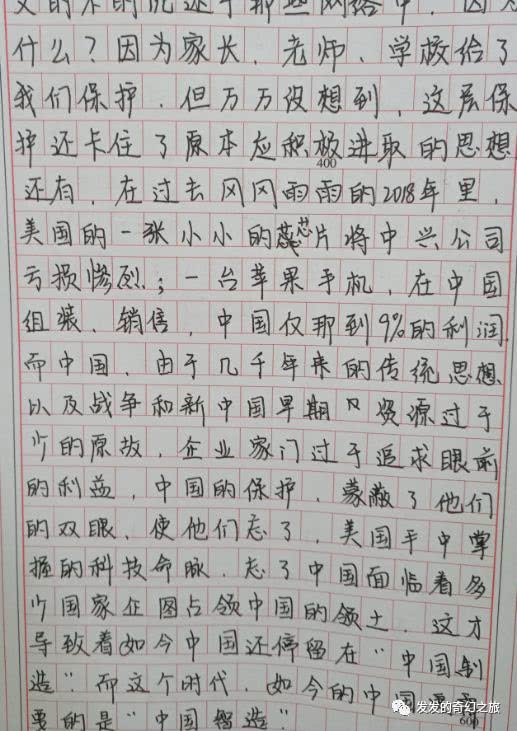 什么？因为家长、老师、学校给了
我们保护，但万万没想到，这层保
护还卡住了原本应积极进取的思想
400
还有，在过去风风雨雨的2018年里，
美国的一张小小的芯片将中兴公司
亏损惨烈；一台苹果手机，在中国
组装、销售，中国仅那到9%的利润，
而中国，由于几千年来的传统思想
以及战争和新中国早期 资源过于
少的原故，企业家门过于追求眼前
的利益，中国的保护，蒙蔽了他们
的双眼，使他们忘了，美国手中掌
握的科技命脉，忘了中国面临着多
少国家企图占领中国的领土，这才
导致着如今中国还停留在“中国制
造”而这个时代，如今的中国
要的是“中国智造”
600
发发的奇幻之旅